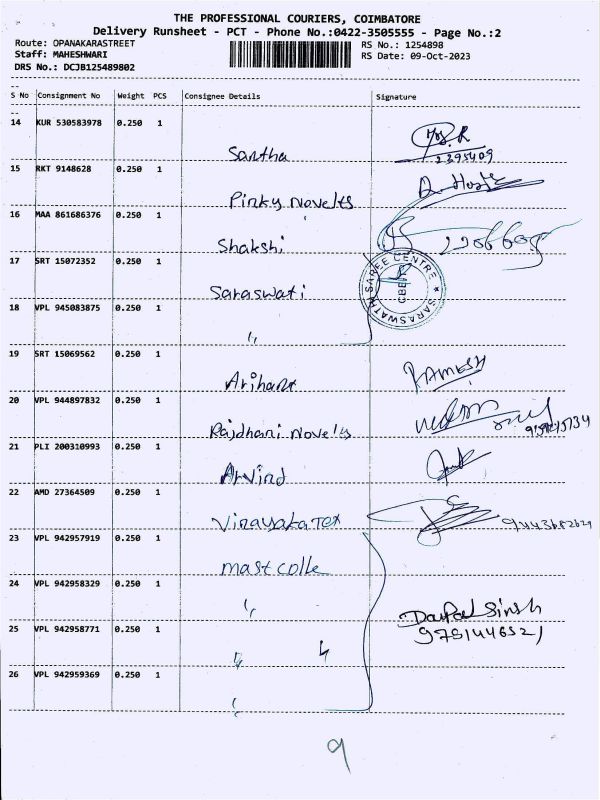 THE PROFESSIONAL COURIERS, COIMBATORE
Delivery Runsheet - PCT - Phone No.:0422-3505555 - Page No.:2
Route: OPANAKARASTREET RS No.: 1254898
Staff: MAHESHWARI RS Date: 09-Oct-2023
DRS No.: DCJB125489802
--
S No Consignment No Weight PCS Consignee Details Signature
--
14 KUR 530583978 0.250 1
Santha 2395409
15 RKT 9148628 0.250 1
Pinky Novelts
16 MAA 861686376 0.250 1
Shakshi
17 SRT 15072352 0.250 1
Saraswati
SARASWATHI SAREE CENTRE
CBE
18 VPL 945083875 0.250 1
"
19 SRT 15069562 0.250 1
Arihant RAMESH
20 VPL 944897832 0.250 1
Rajdhani Novels
21 PLI 200310993 0.250 1
Arvind
22 AMD 27364509 0.250 1
Vinayaka Tex
23 VPL 942957919 0.250 1
mast colle
24 VPL 942958329 0.250 1
"
Singh
25 VPL 942958771 0.250 1
" "
26 VPL 942959369 0.250 1
"
9